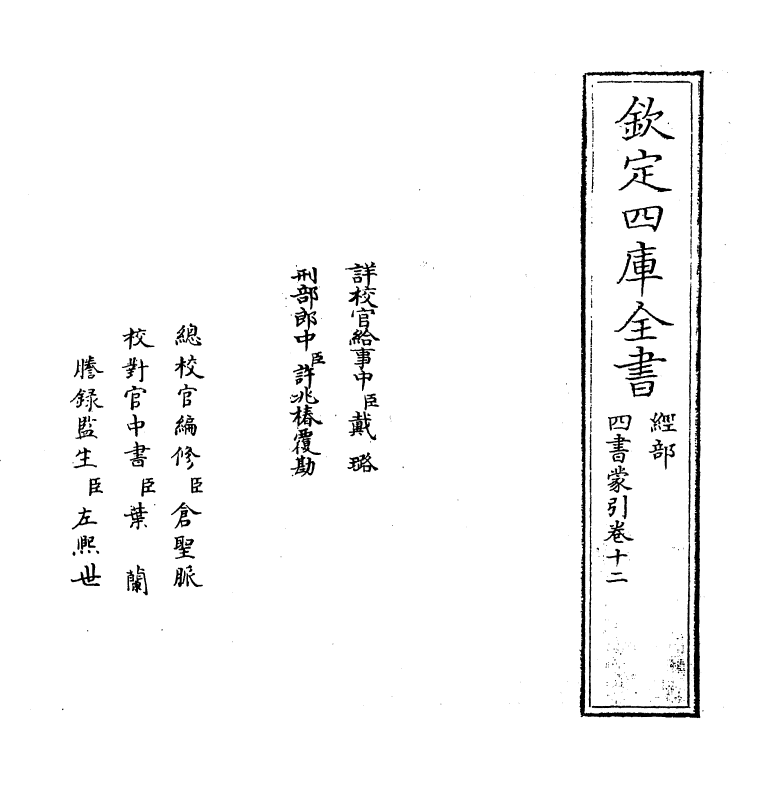 欽定四庫全書
經部
四書蒙引卷十二
詳校官給事中臣戴璐
刑部郎中臣許兆椿覆勘
總校官編修臣倉聖脈
校對官中書臣葉蘭
謄錄監生臣左熙世